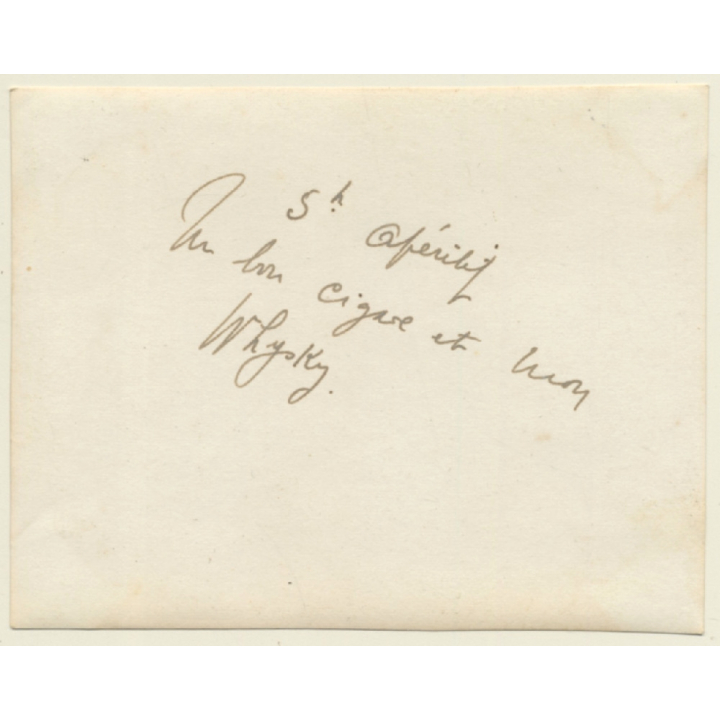 5h. Apéritif
Un bon cigare et mon
Whysky.